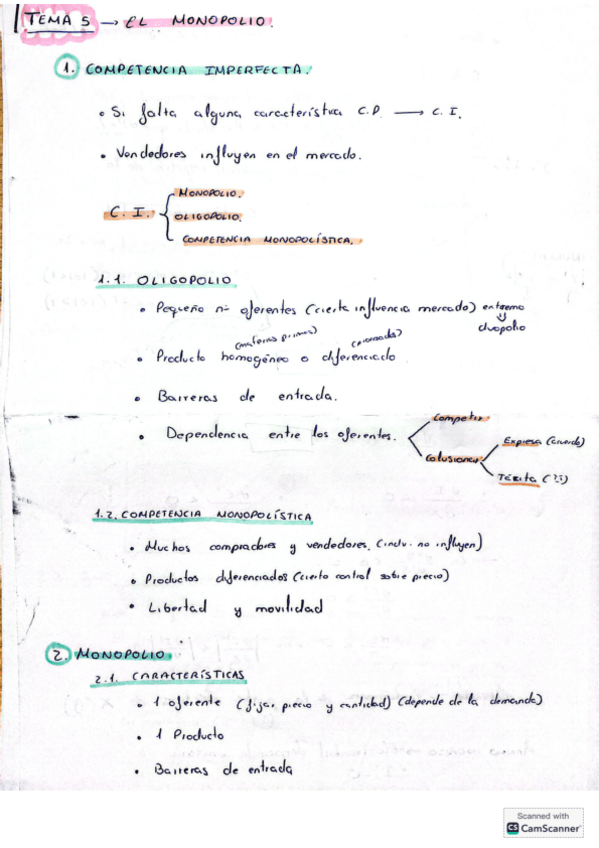 TEMA 5 → EL MONOPOLIO.
1. COMPETENCIA IMPERFECTA.
• Si falta alguna característica C.P. → C.I.
• Vendedores influyen en el mercado.
MONOPOLIO.
C. I. { OLIGOPOLIO.
COMPETENCIA MONOPOLÍSTICA.
1.1. OLIGOPOLIO
• Pequeño nº oferentes (cierta influencia mercado) extremo
duopolio
(materias primas)
• Producto homogéneo o diferenciado
• Barreras de entrada.
Competir
• Dependencia entre los oferentes.
Expresa (acuerdo)
Colusionar
Tácita
1.2. COMPETENCIA MONOPOLÍSTICA
• Muchos compradores y vendedores. (indiv. no influyen)
• Productos diferenciados (cierto control sobre precio)
• Libertad y movilidad
2. MONOPOLIO
2.1. CARACTERÍSTICAS
• 1 oferente (fijar precio y cantidad) (depende de la demanda)
• 1 Producto
• Barreras de entrada
Scanned with
CS CamScanner